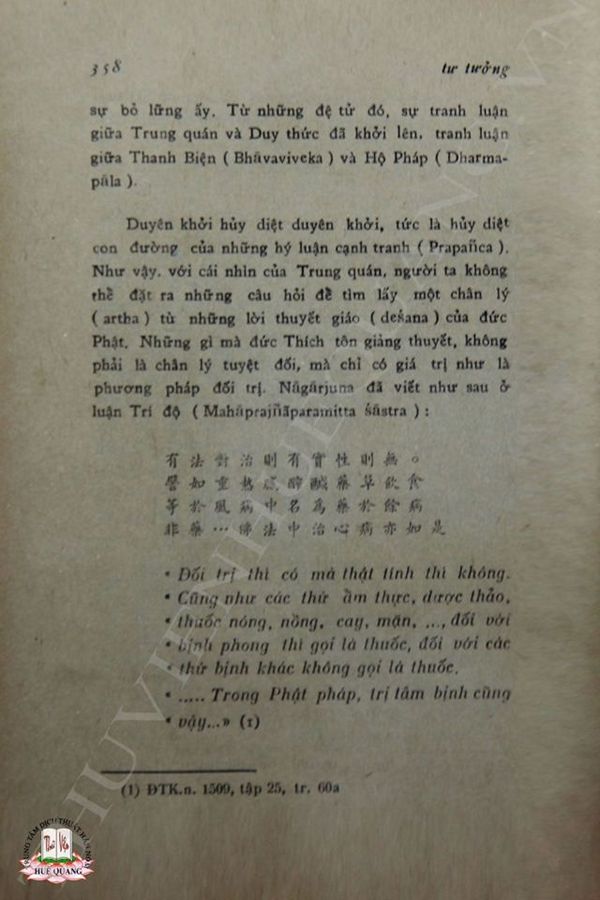 358
tư tưởng
sự bỏ lững ấy. Từ những đệ tử đó, sự tranh luận
giữa Trung quán và Duy thức đã khởi lên, tranh luận
giữa Thanh Biện ( Bhāvaviveka ) và Hộ Pháp ( Dharma-
pāla ).
Duyên khởi hủy diệt duyên khởi, tức là hủy diệt
con đường của những hý luận cạnh tranh ( Prapañca ).
Như vậy, với cái nhìn của Trung quán, người ta không
thể đặt ra những câu hỏi để tìm lấy một chân lý
( artha ) từ những lời thuyết giáo ( deśana ) của đức
Phật. Những gì mà đức Thích tôn giảng thuyết, không
phải là chân lý tuyệt đối, mà chỉ có giá trị như là
phương pháp đối trị. Nāgārjuna đã viết như sau ở
luận Trí độ ( Mahāprajñāparamitta śāstra ) :
有法對治則有實性則無。
譬如重熱膩酢鹹藥草飲食
等於風病中名為藥於餘病
非藥…佛法中治心病亦如是
• Đối trị thì có mà thật tính thì không.
• Cũng như các thứ ẩm thực, dược thảo,
• thuốc nóng, nồng, cay, mặn, ..., đối với
• bịnh phong thì gọi là thuốc, đối với các
• thứ bịnh khác không gọi là thuốc.
• ..... Trong Phật pháp, trị tâm bịnh cũng
• vậy...» (1)
(1) ĐTK.n. 1509, tập 25, tr. 60a
TRUNG TÂM DỊCH THUẬT HÁN NÔM
HUỆ QUANG